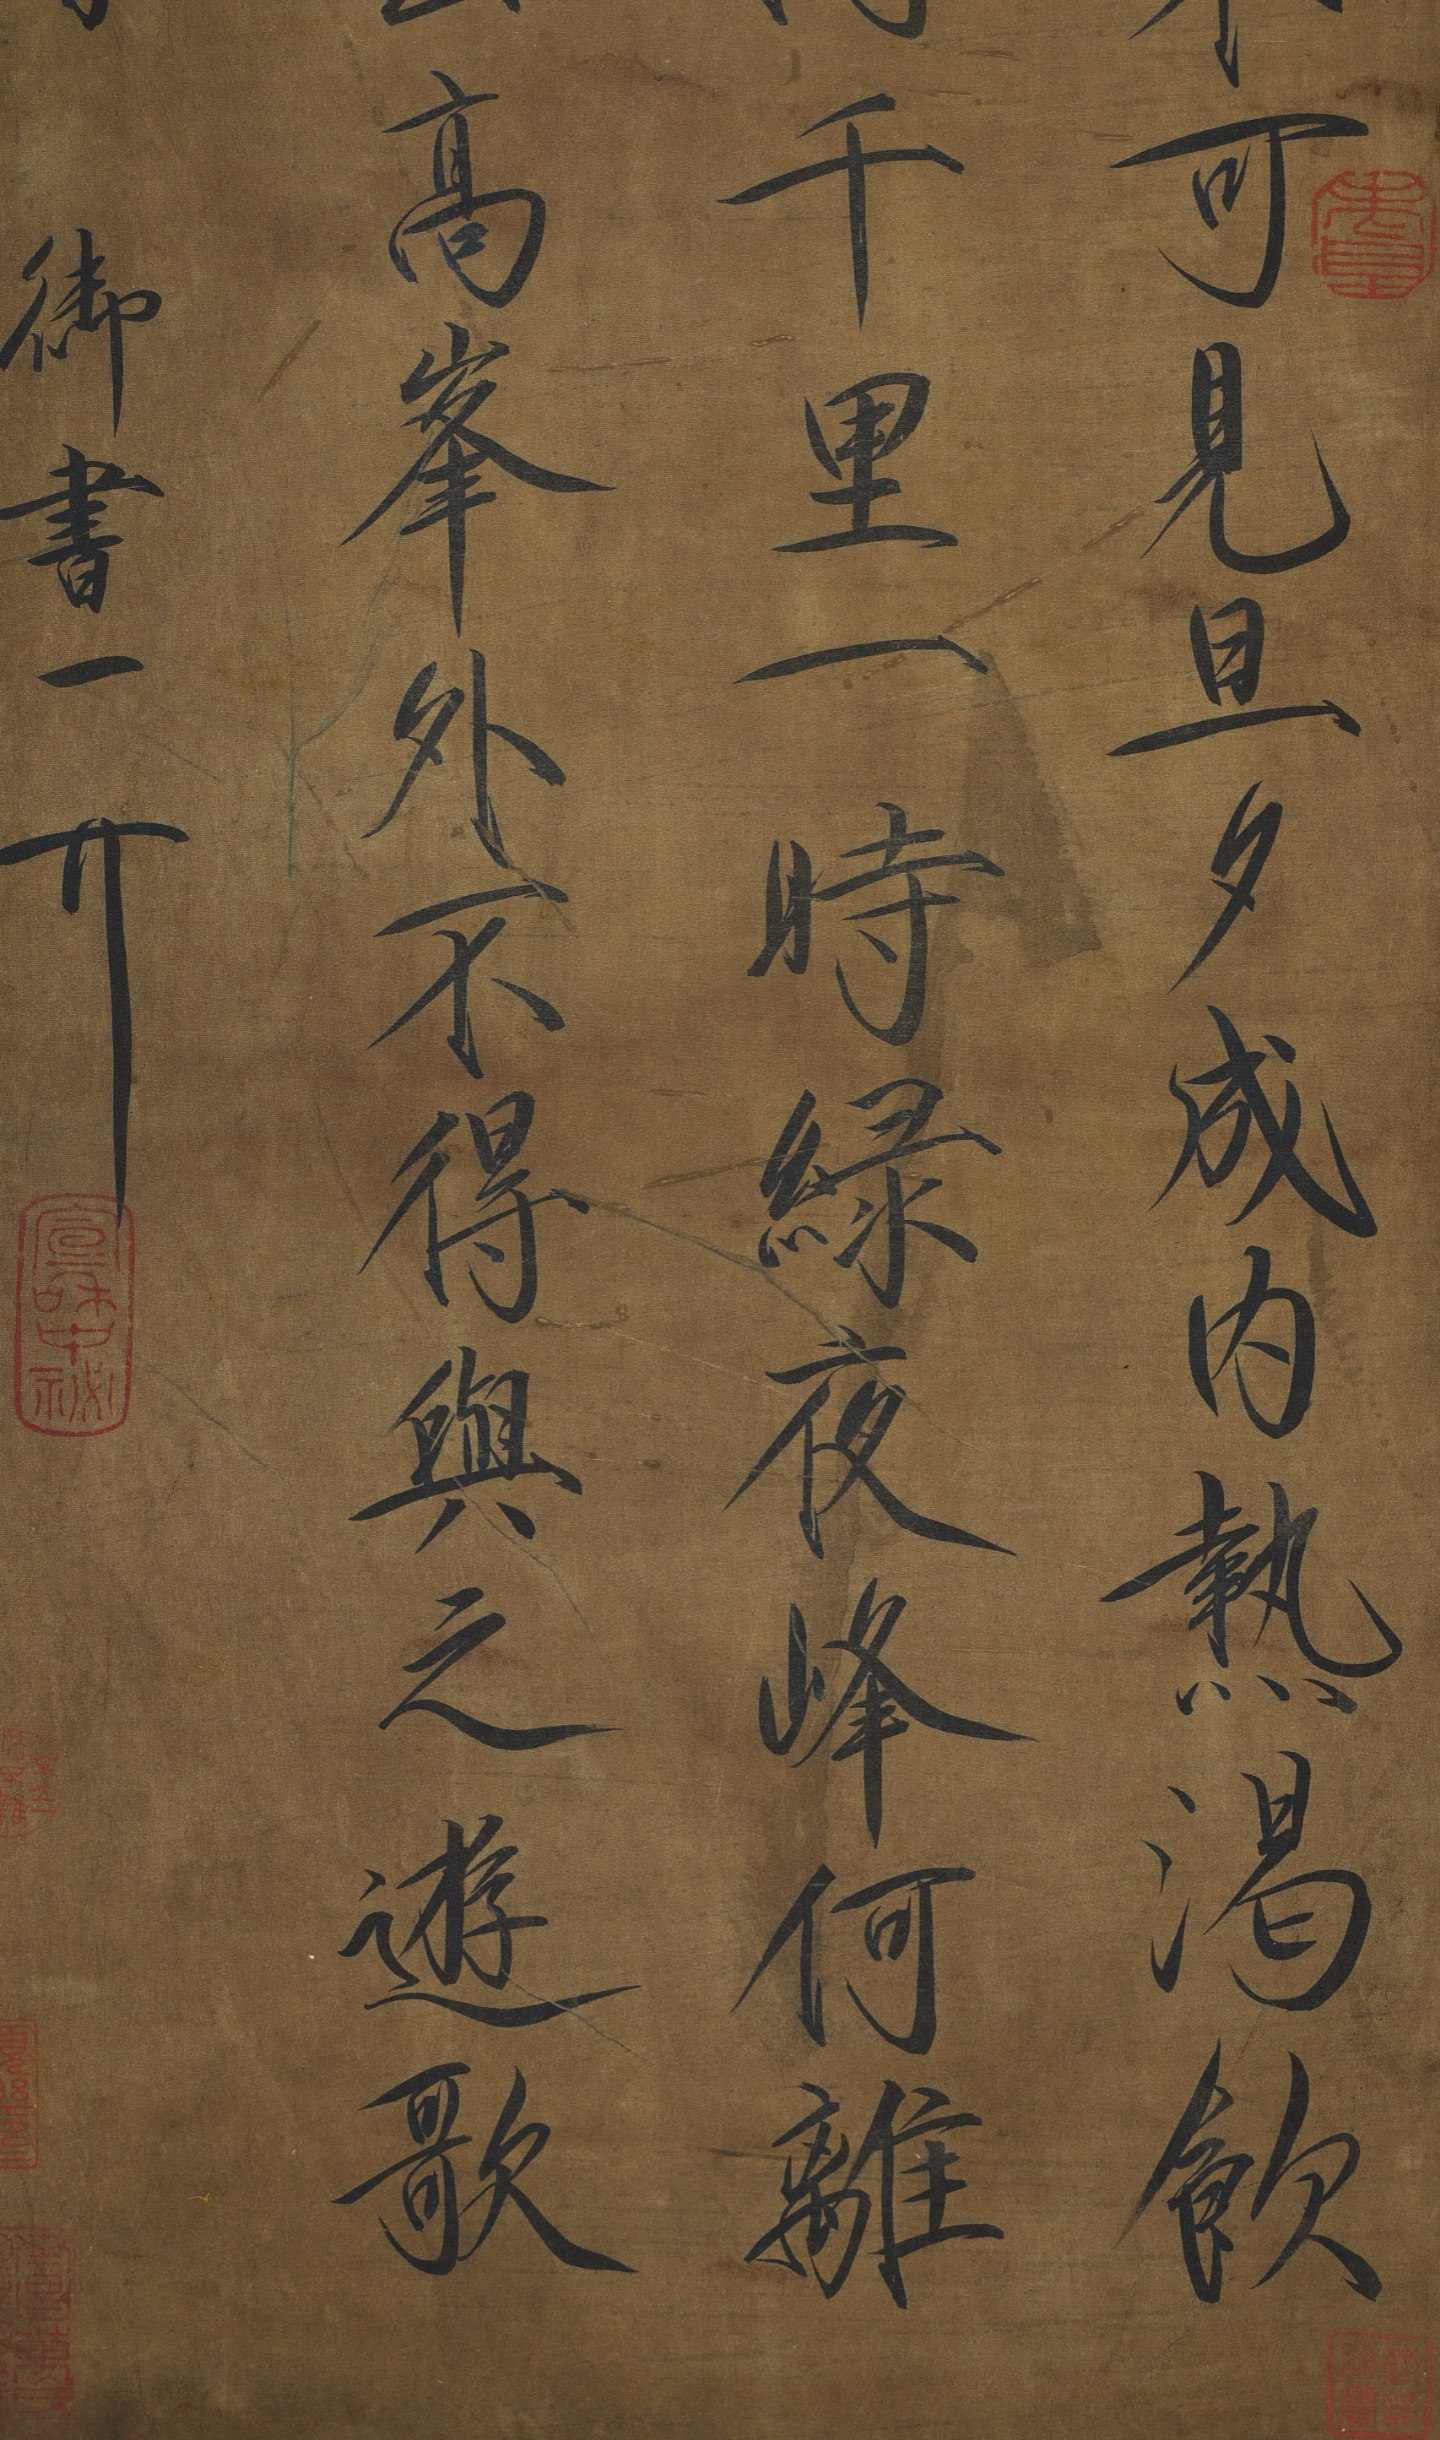 可見旦夕成内熱渴飲
千里一時緑夜峰何離
高峯外不得與之遊歌
御書一